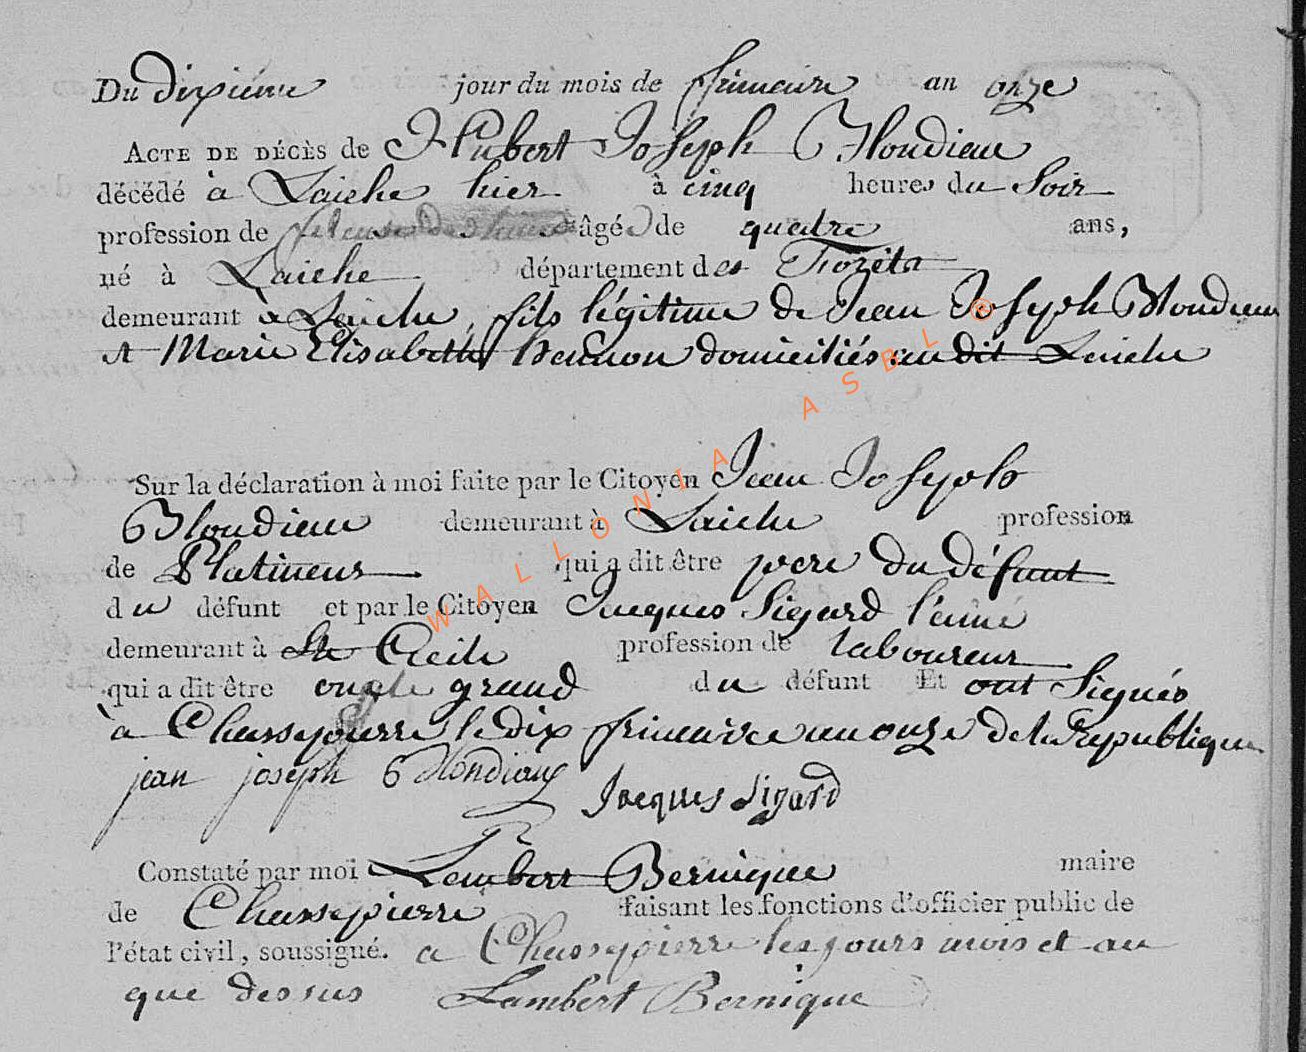 Du dixieme jour du mois de frimaire an onze
ACTE DE DÉCÈS de Hubert Joseph Blondieau
décédé à Laiche hier à cinq heures du soir
profession de âgé de quatre ans,
né à Laiche département des Forêts
demeurant à Laiche, fils légitime de Jean Joseph Blondieau
et Marie Elisabeth domiciliés audit Laiche
Sur la déclaration à moi faite par le Citoyen Jean Joseph
Blondieau demeurant à Laiche profession
de Platineur qui a dit être pere du défunt
du défunt et par le Citoyen Jacques Sigard l'ainé
demeurant à Ste Cecile profession de laboureur
qui a dit être oncle grand du défunt Et ont Signés
à Chassepierre le dix frimaire an onze de la Republique
jean joseph Blondiaux
Jacques Sigard
Constaté par moi Lambert Bernique maire
de Chassepierre faisant les fonctions d'officier public de
l'état civil, soussigné. a Chassepierre les jours mois et an
que dessus Lambert Bernique
WALLONIA ASBL ®